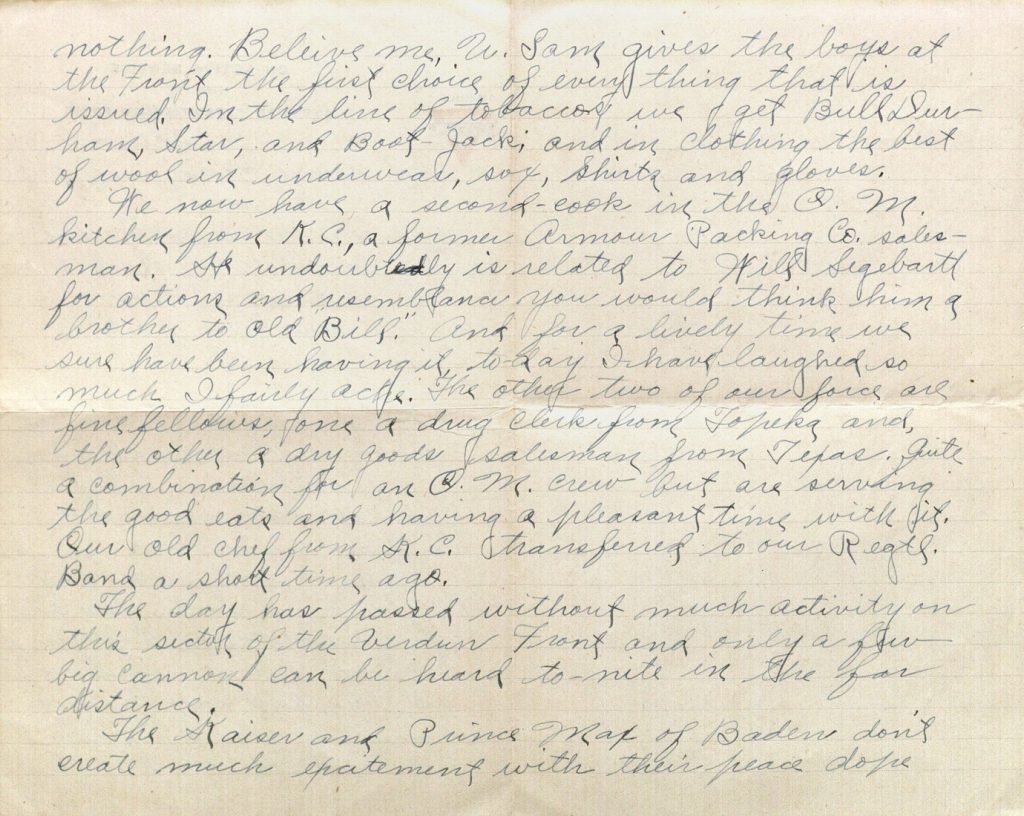 nothing. Beleive me, U. Sam gives the boys at
the Front the first choice of every thing that is
issued. In the line of tobaccos we get Bull Dur-
ham, Star, and Boot-Jack; and in clothing the best
of wool in underwear, sox, shirts and gloves.
We now have a second-cook in the O. M.
kitchen from K.C., a former Armour Packing Co. sales-
man. He undoubtedly is related to Will Segebartt
for actions and resemblance you would think him a
brother to old "Bill." And for a lively time we
sure have been having it, to-day I have laughed so
much I fairly ache. The other two of our force are
fine fellows, one a drug clerk from Topeka and,
the other a dry goods salesman from Texas. Quite
a combination for an O. M. crew but are serving
the good eats and having a pleasant time with it.
Our old chef from K.C. transferred to our Regtl.
Band a short time ago.
The day has passed without much activity on
this sector of the Verdun Front and only a few
big cannon can be heard to-nite in the far
distance.
The Kaiser and Prince Max of Baden don't
create much excitement with their peace dope